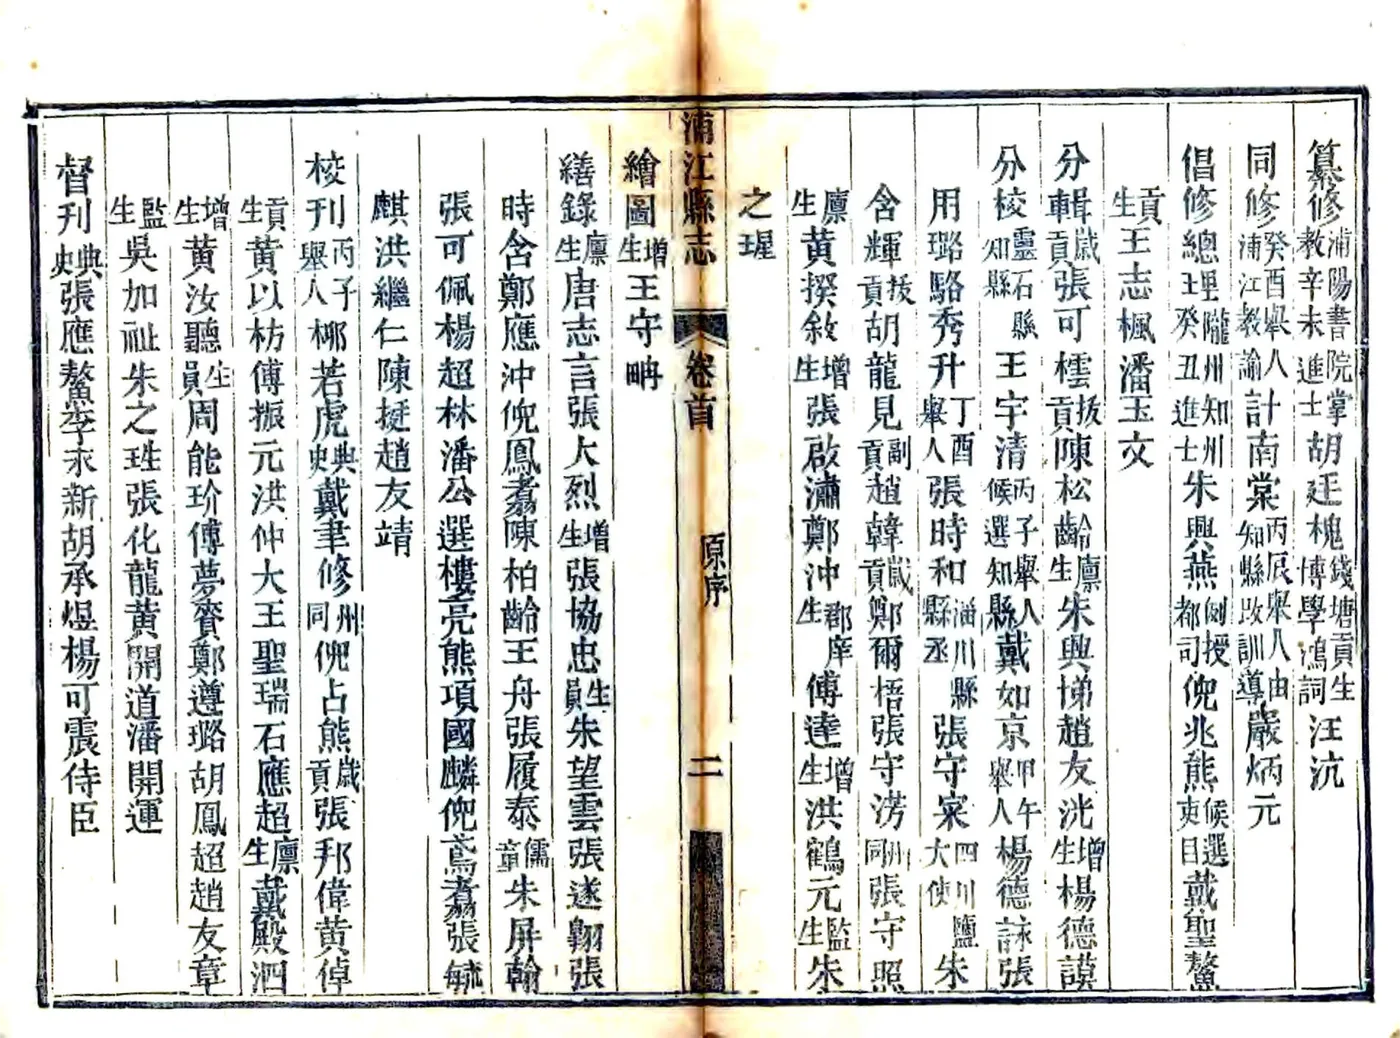 纂修浦陽書院掌教辛未進士胡廷槐錢塘貢生博學鴻詞汪沆
同修癸酉舉人浦江教諭計南棠丙辰舉人由知縣改訓導嚴炳元
倡修總理隴州知州壬癸丑進士朱興燕例授都司倪兆熊候選吏目戴聖鰲
貢生王志楓潘玉文
分輯歲貢張可橒拔貢陳松齡廪生朱興悌趙友洸增生楊德謨
分校靈石縣知縣王宇清丙子舉人候選知縣戴如京甲午舉人楊德詠張
用璐駱秀升丁酉舉人張時和淄川縣縣丞張守家四川鹽大使朱
含輝拔貢胡龍見副貢趙韓歲貢鄭爾梧張守涝州同張守照
廪生黄揆敘增生張啟潚鄭沖郡庠生傅達增生洪鶴元監生朱
之瑆
浦江縣志 卷首 原序 二
繪圖增生王守畊
繕錄廪生唐志言張大烈增生張協忠生員朱望雲張遂翺張
時含鄭應沖倪鳳翥陳柏齡王舟張履泰儒童朱屏翰
張可佩楊超林潘公選樓亮熊項國麟倪鳶翥張毓
麒洪繼仁陳挺趙友靖
校刊丙子舉人柳若虎典史戴聿修州同倪占熊歲貢張邦偉黄倬
貢生黄以枋傅振元洪仲大王聖瑞石應超廪生戴殿泗
增生黄汝聽生員周能玠傅夢賚鄭遵璐胡鳳超趙友章
監生吳加祉朱之珄張化龍黄開道潘開運
督刊典史張應鰲李永新胡承煜楊可震侍臣